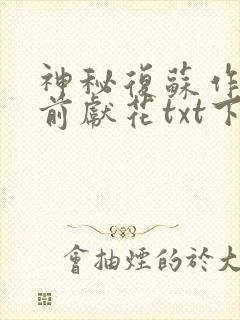 神秘復蘇作
前獻花txt下
會抽煙的於大